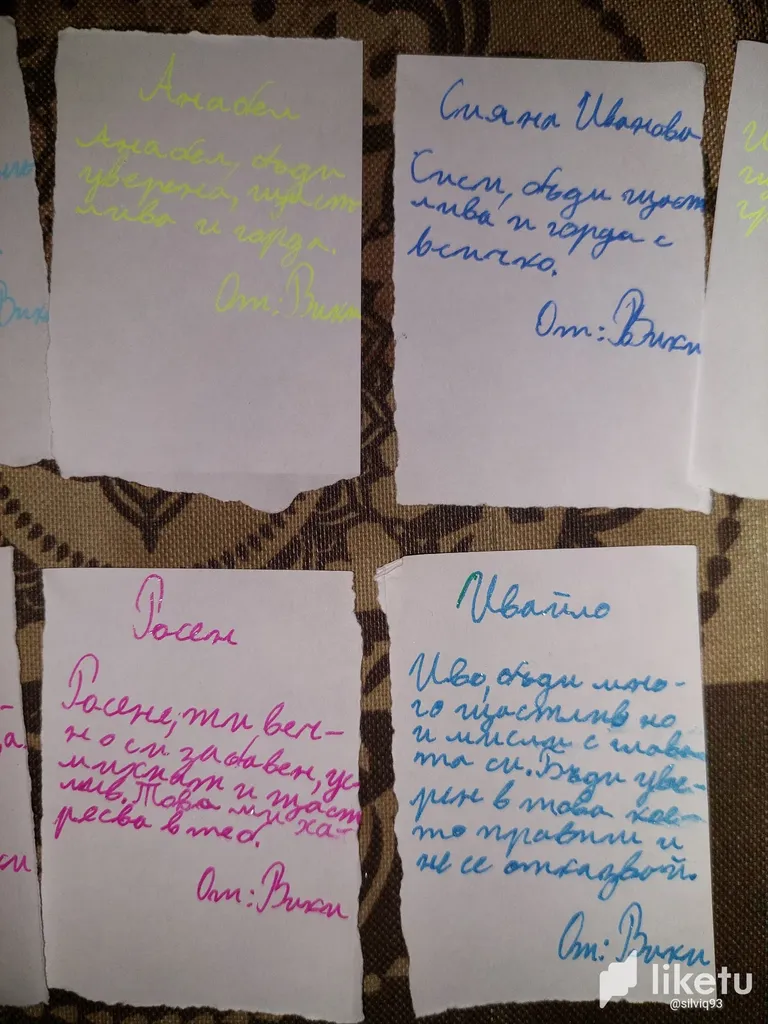 Анабел
Анабел, бъди
уверена, щаст
лива и горда.
От: Вики
Сияна Иванова
Сиси, бъди щаст
лива и горда с
всичко.
От: Вики
Росен
Росене, ти, веч-
но си забавен, ус-
михнат и щаст
лив. Това ми ха-
ресва в теб.
От: Вики
Ивайло
Иво, бъди мно-
го щастлив но
и мисли с глава-
та си. Бъди уве-
рен в това кое-
то правиш и
не се отказвай.
От: Вики
liketu
@silviq93